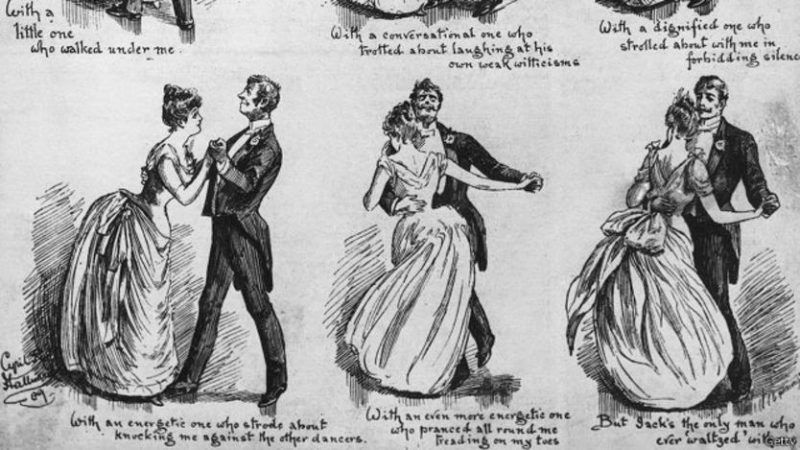 With a
little one
who walked under me.
With a conversational one who
trotted about laughing at his
own weak witticisms
With a dignified one who
strolled about with me in
forbidding silence
With an energetic one who strode about
knocking me against the other dancers.
With an even more energetic one
who pranced all round me
treading on my toes
But Jack's the only man who
ever waltzed with
Getty